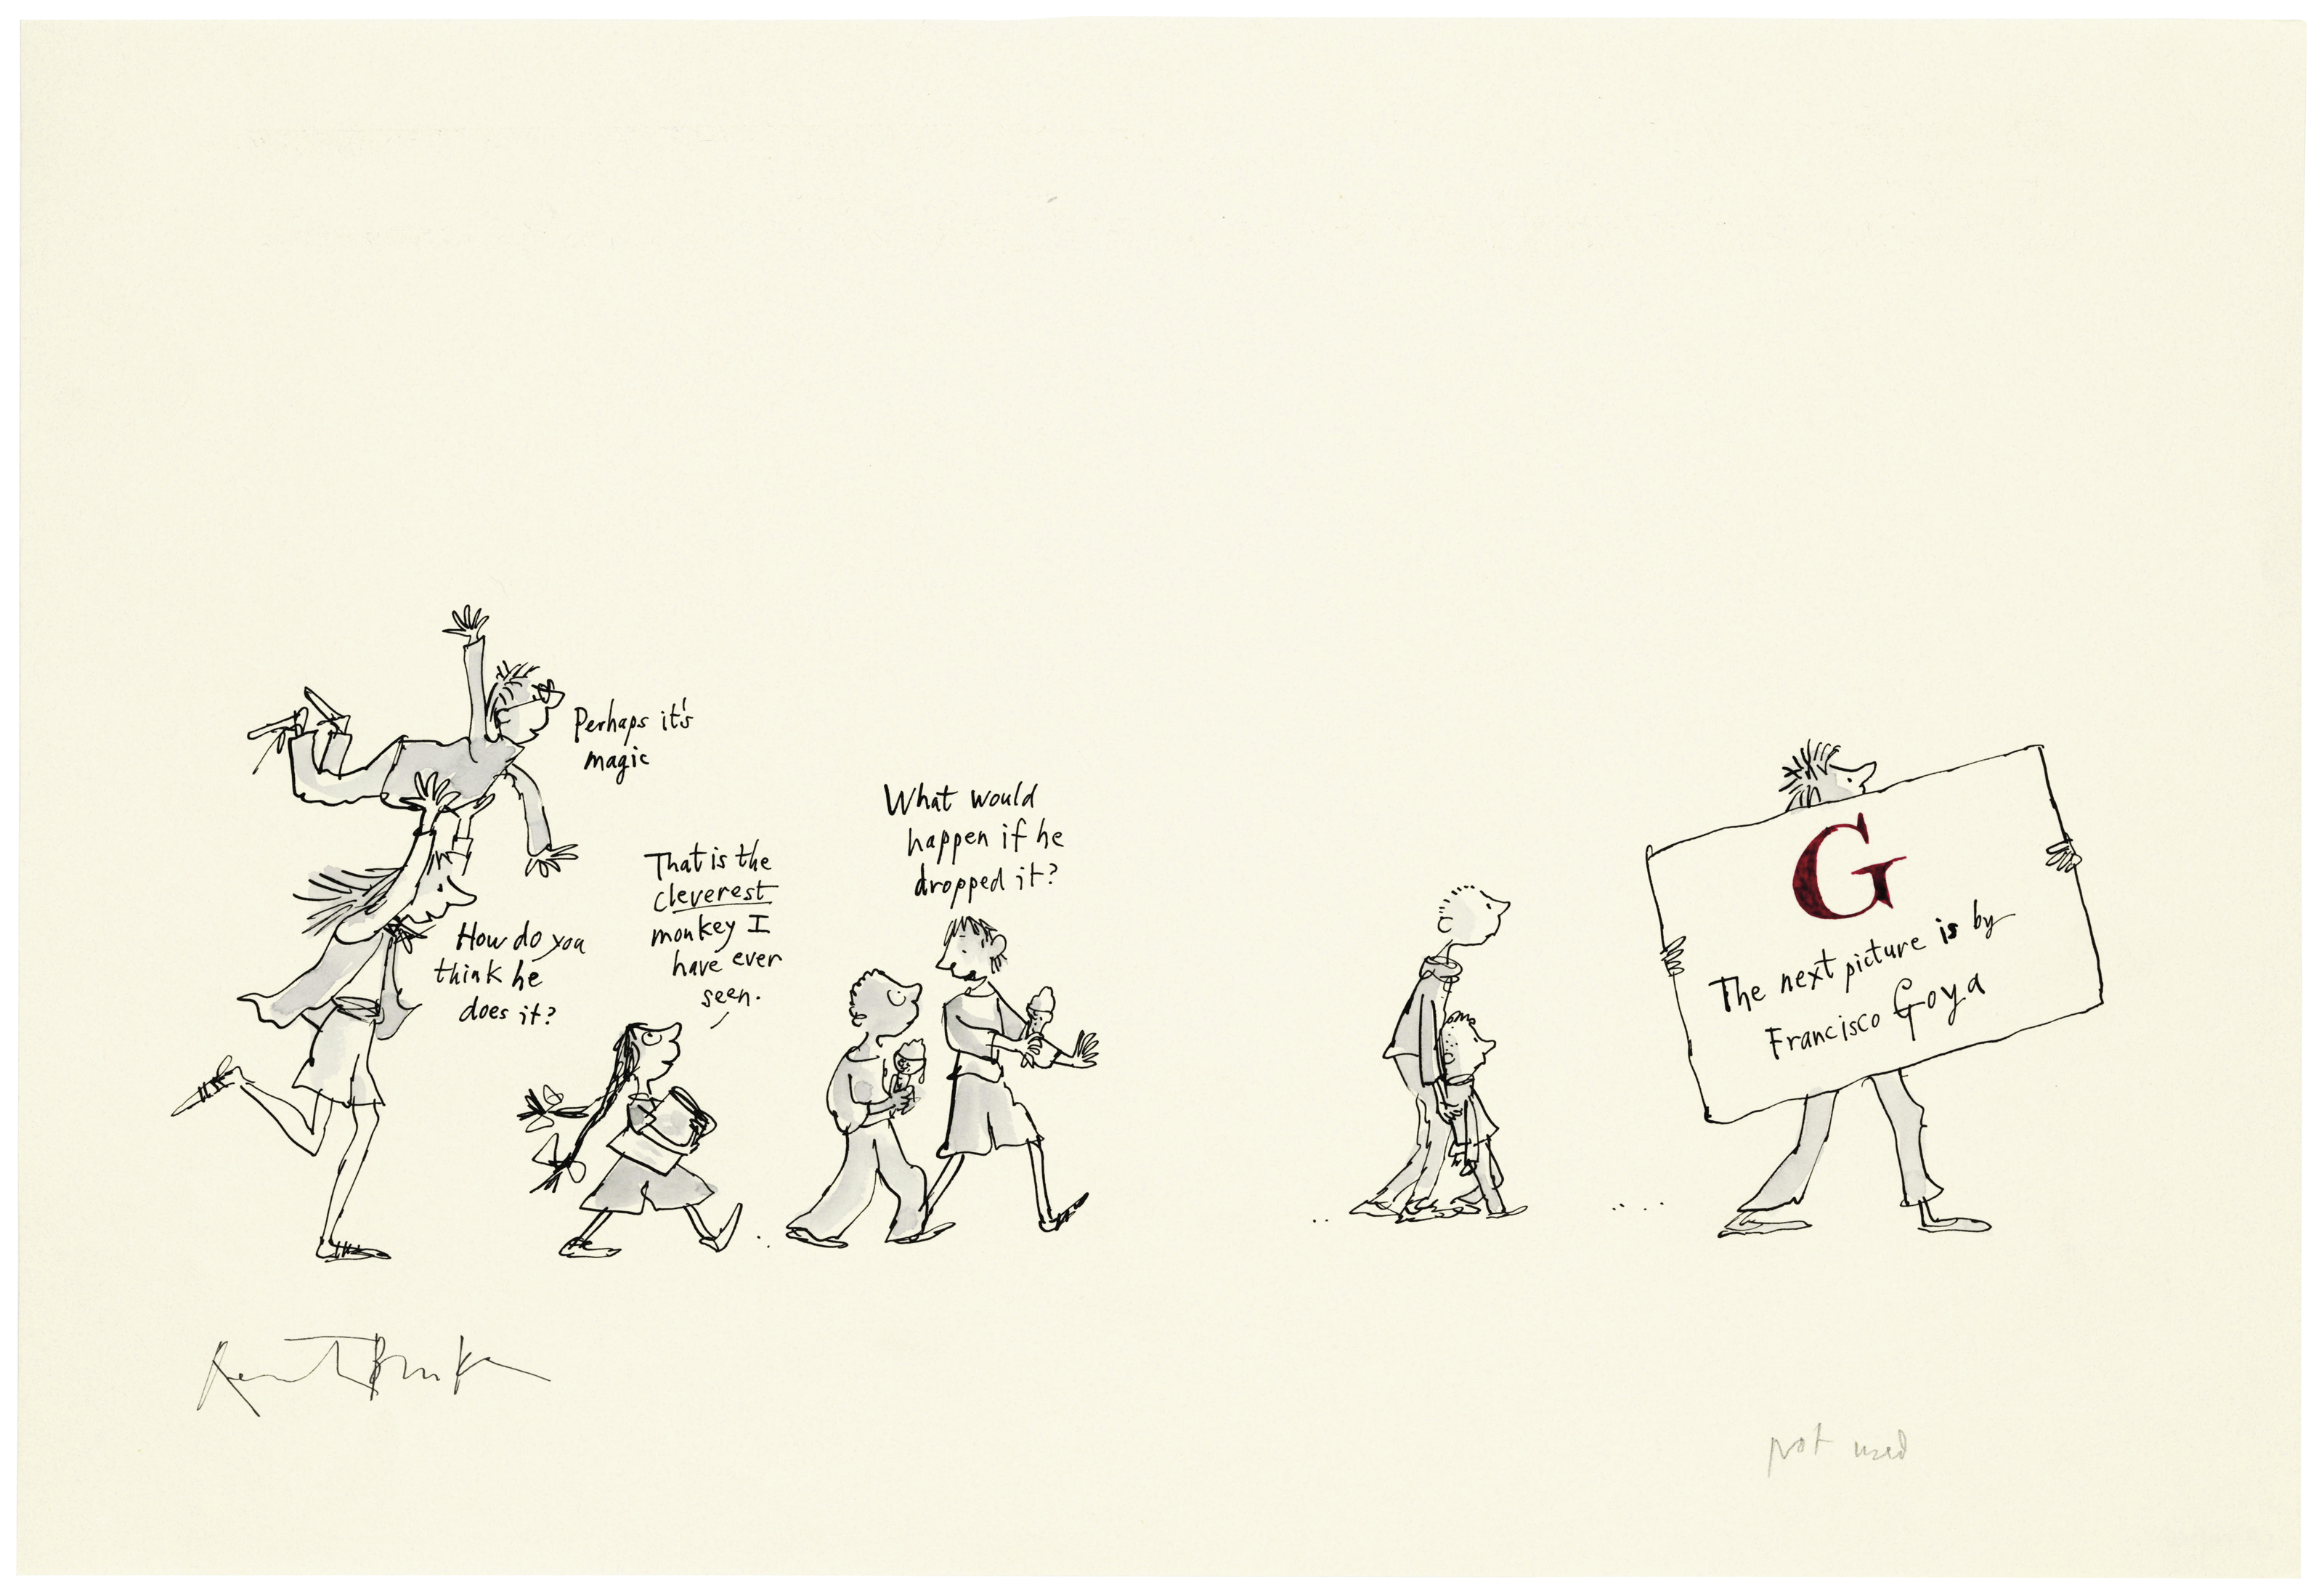 Perhaps it's
magic
How do you
think he
does it?
That is the
cleverest
monkey I
have ever
seen.
What would
happen if he
dropped it?
G
The next picture is by
Francisco Goya
not used